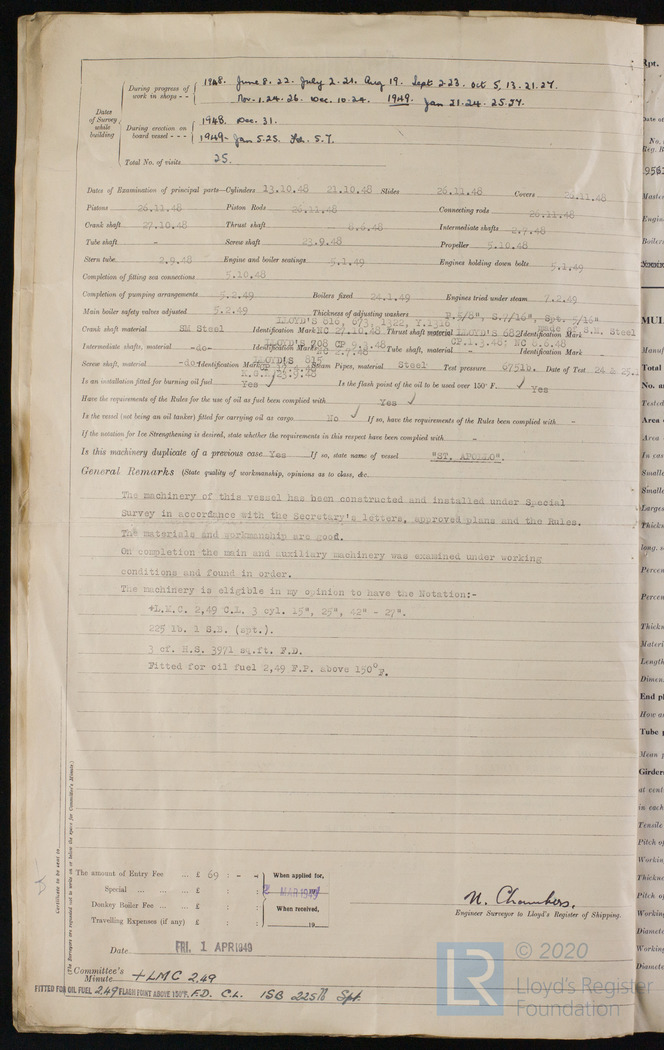 During progress of work in shops - - 1948. June 8. 22. July 2. 21. Aug 19. Sept 2. 23. Oct 5, 13. 21. 27.
Nov. 1. 24. 26. Dec. 10. 24. 1949. Jan 21. 24. 25. 27.
Dates of Survey while building
During erection on board vessel - - - 1948. Dec. 31.
1949- Jan 5. 25. Feb. 5. 7.
Total No. of visits 25.
Dates of Examination of principal parts—Cylinders 13.10.48 21.10.48 Slides 26.11.48 Covers 26.11.48
Pistons 26.11.48 Piston Rods 26.11.48 Connecting rods 26.11.48
Crank shaft 27.10.48 Thrust shaft 8.6.48 Intermediate shafts 2.7.48
Tube shaft - Screw shaft 23.9.48 Propeller 5.10.48
Stern tube 2.9.48 Engine and boiler seatings 5.1.49 Engines holding down bolts 5.1.49
Completion of fitting sea connections 5.10.48
Completion of pumping arrangements 5.2.49 Boilers fixed 24.1.49 Engines tried under steam 7.2.49
Main boiler safety valves adjusted 5.2.49 Thickness of adjusting washers P.3/8", S.7/16", Spt. 5/16"
Crank shaft material SM Steel Identification Mark LLOYD'S 818, 673, 1322, Y.1318 NC 27.10.48 Thrust shaft material made of S.M. Steel Identification Mark LLOYD'S 682 CP.1.3.48; NC 8.6.48
Intermediate shafts, material -do- Identification Marks LLOYD'S 708 CP 9.3.48 NC 2.7.48 Tube shaft, material - Identification Mark -
Screw shaft, material -do- Identification Mark LLOYD'S 815 Steam Pipes, material Steel Test pressure 675lb. Date of Test 24 & 25.1
Is an installation fitted for burning oil fuel Yes Is the flash point of the oil to be used over 150° F. Yes
Have the requirements of the Rules for the use of oil as fuel been complied with Yes
Is the vessel (not being an oil tanker) fitted for carrying oil as cargo No If so, have the requirements of the Rules been complied with -
If the notation for Ice Strengthening is desired, state whether the requirements in this respect have been complied with -
Is this machinery duplicate of a previous case Yes If so, state name of vessel "ST. APOLLO".
General Remarks (State quality of workmanship, opinions as to class, &c.
The machinery of this vessel has been constructed and installed under Special
Survey in accordance with the Secretary's letters, approved plans and the Rules.
The materials and workmanship are good.
On completion the main and auxiliary machinery was examined under working
conditions and found in order.
The machinery is eligible in my opinion to have the Notation:-
+L.M.C. 2,49 C.L. 3 cyl. 15", 25", 42" - 27".
225 lb. 1 S.B. (spt.).
3 cf. H.S. 3971 sq.ft. F.D.
Fitted for oil fuel 2,49 F.P. above 150°F.
Certificate to be sent to
(The Surveyors are requested not to write on or below the space for Committee's Minute.)
The amount of Entry Fee ... £ 69 : - - When applied for,
Special ... ... ... £ : : 2 MAR 1949
Donkey Boiler Fee ... ... £ : : When received,
Travelling Expenses (if any) £ : : 19
N. Chambers.
Engineer Surveyor to Lloyd's Register of Shipping.
Date FRI. 1 APR 1949
Committee's Minute + LMC 2,49
FITTED FOR OIL FUEL 2,49 FLASH POINT ABOVE 150°F. F.D. C.L. 1SB 225 lb Spt.
LR © 2020
Lloyd's Register
Foundation